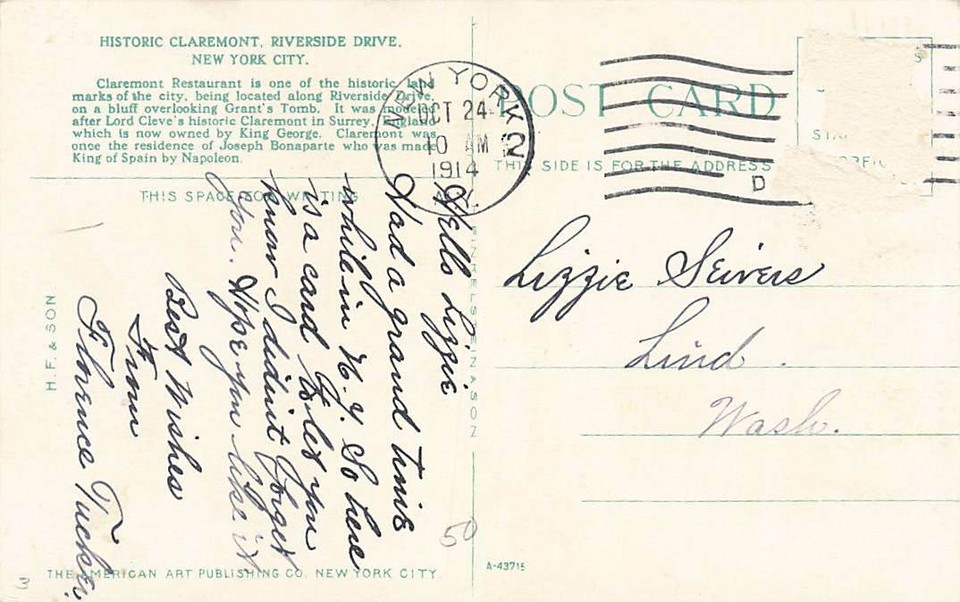 HISTORIC CLAREMONT, RIVERSIDE DRIVE,
NEW YORK CITY.
Claremont Restaurant is one of the historic land-
marks of the city, being located along Riverside Drive,
on a bluff overlooking Grant's Tomb. It was modeled
after Lord Cleve's historic Claremont in Surrey, England
which is now owned by King George. Claremont was
once the residence of Joseph Bonaparte who was made
King of Spain by Napoleon.
THIS SPACE FOR WRITING
NEW YORK
OCT 24
10 AM
1914
N.Y.
2
POST CARD
THIS SIDE IS FOR THE ADDRESS
D
Hello Lizzie
Had a grand time
while in N.Y. So here
is a card to let you
know I didnit forget
you. Hope you like it
Best Wishes
From
Florence Tucker.
Lizzie Seivers
Lind.
Wash.
H. F. & SON
FINKELSTEIN & SON
50
3
THE AMERICAN ART PUBLISHING CO. NEW YORK CITY.
A-43715